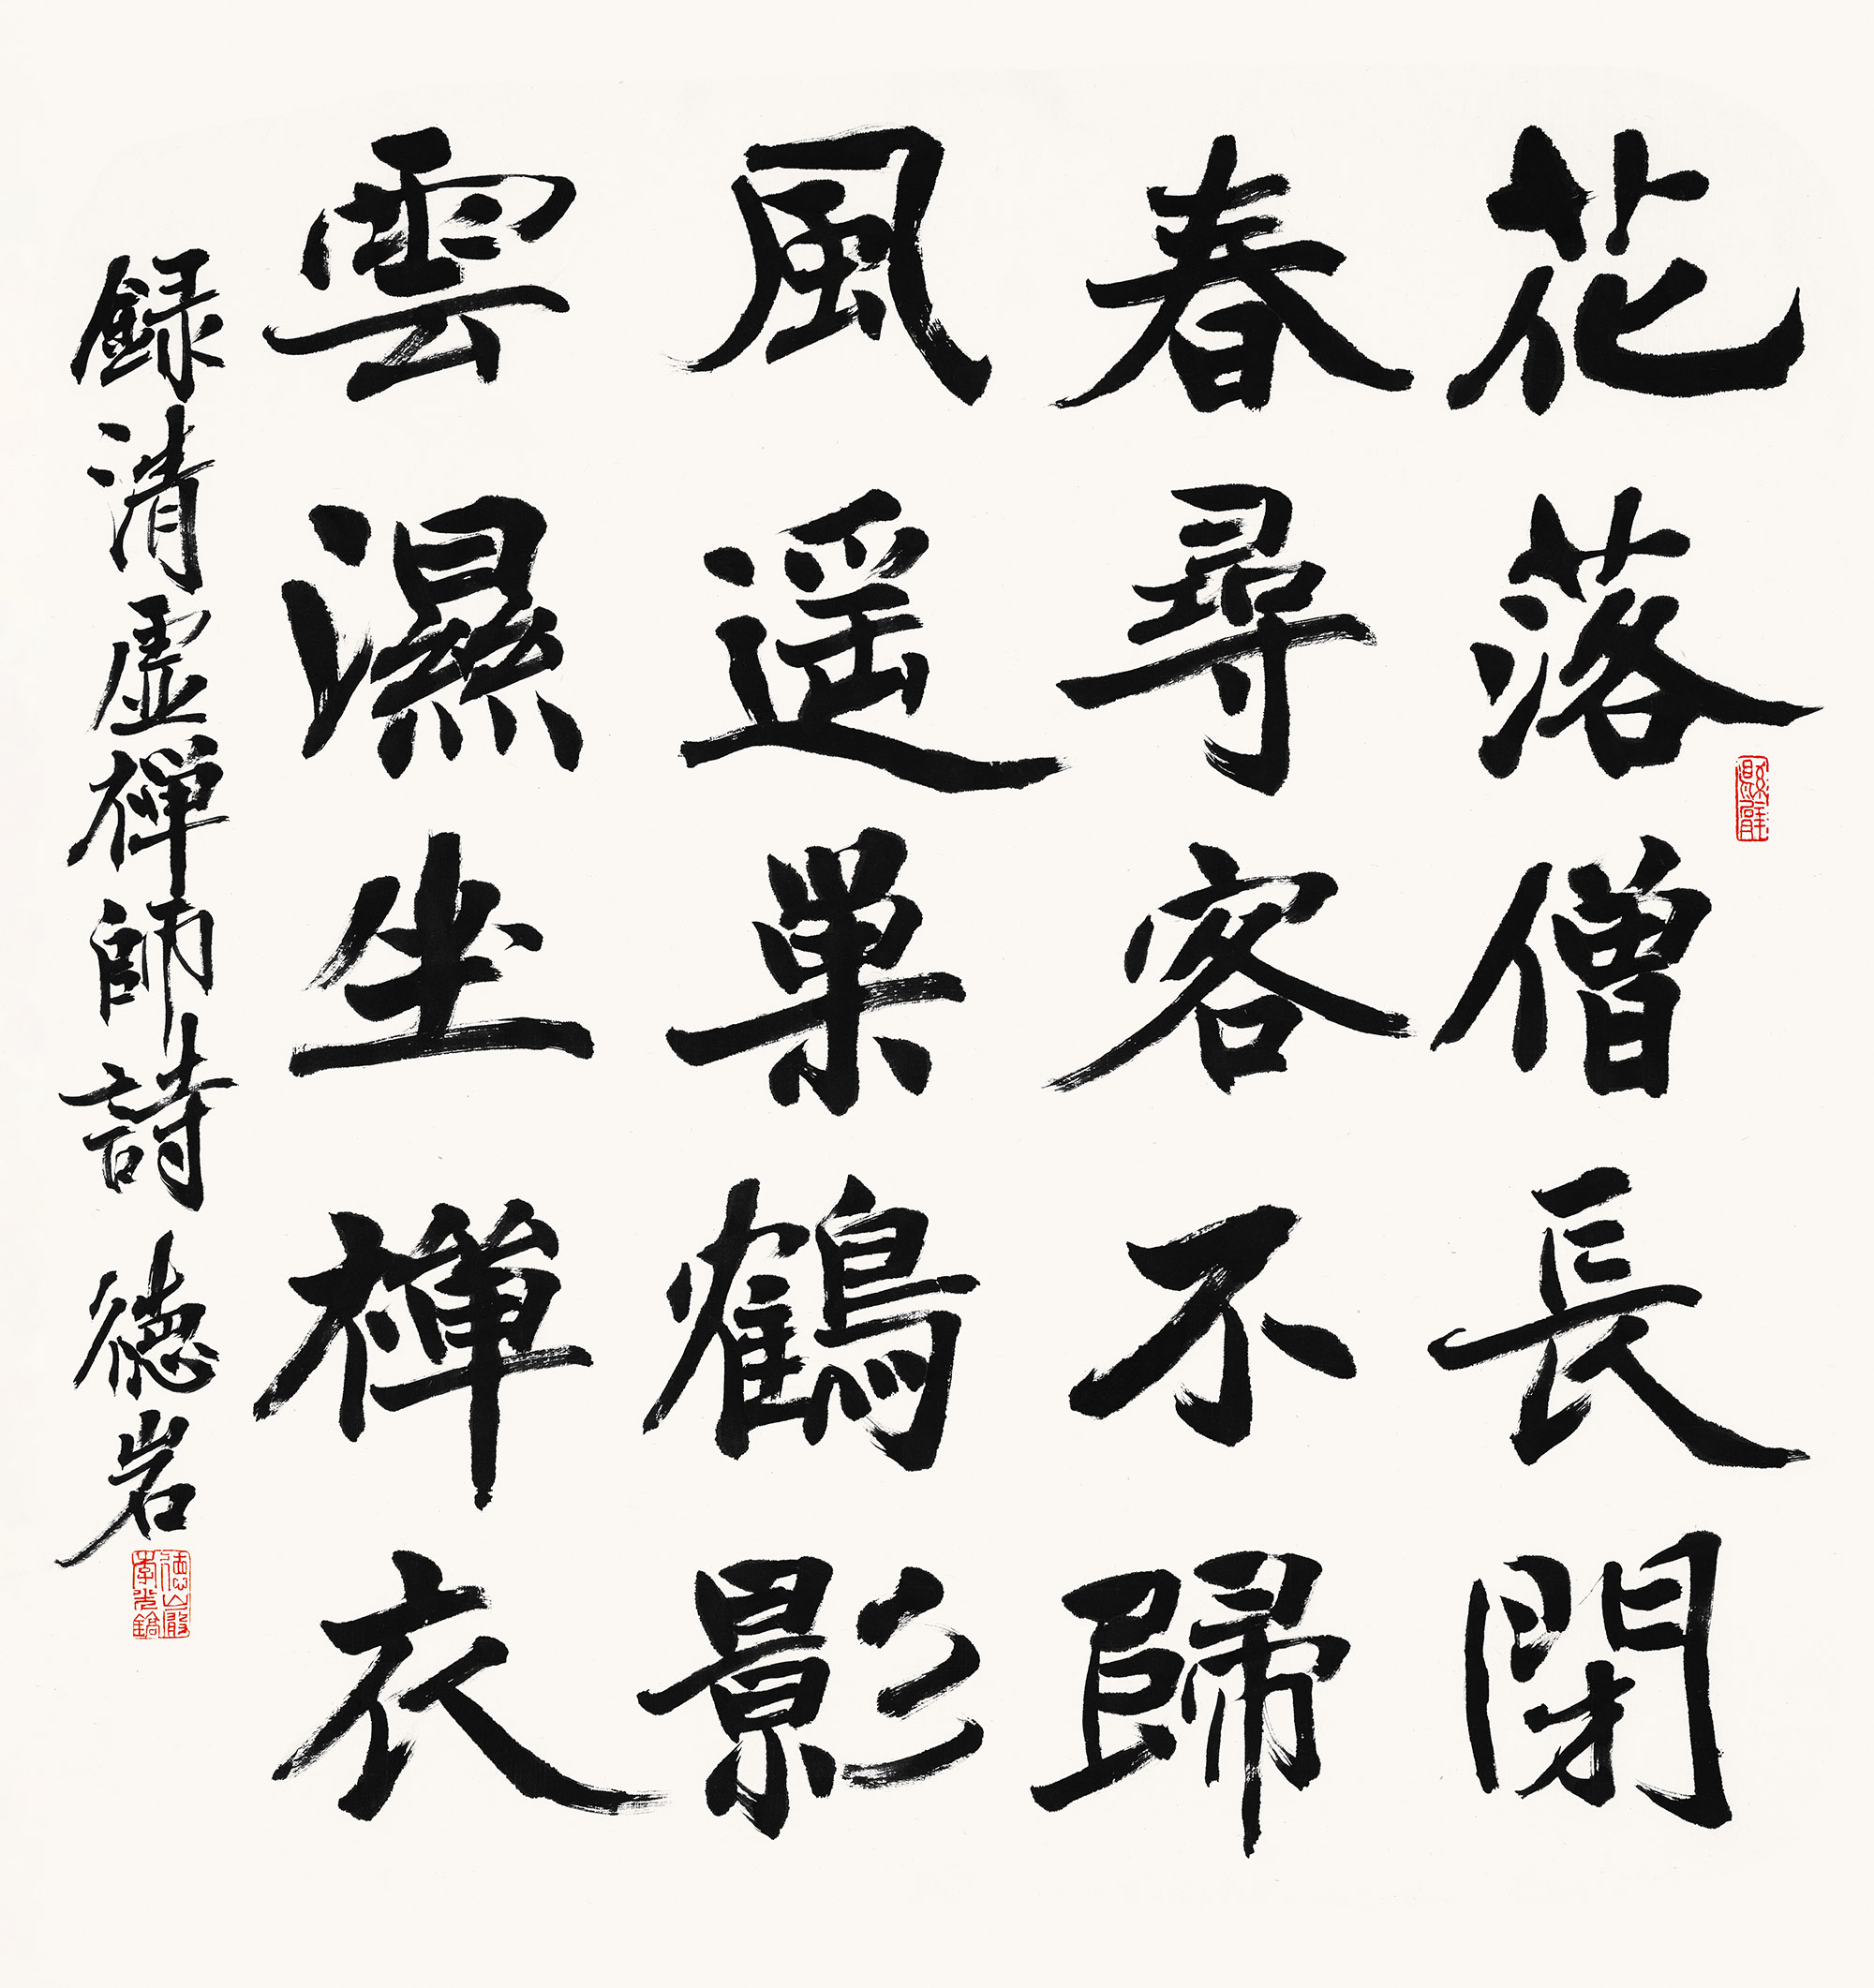 花落僧長閉
春尋客不歸
風遥巢鶴影
雲濕坐禪衣
録清虛禪師詩 德岩